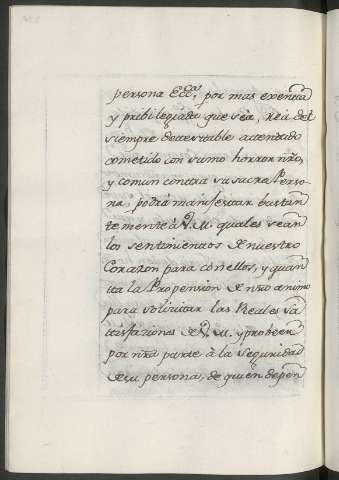 persona Ecc.ca, por mas exempta
y pribilegiada que sea, rea del
siempre detestable attentado
cometido con sumo horror nro,
y comun contra su sacra Perso-
na, podrá manifestar bastan
temente à V. M. quales sean
los sentimientos de nuestro
Corazon para con ellos, y quan
ta la Propension de nro animo
para solicitar las Reales sa
tisfaziones de V. M. y probeer
por nra parte à la Seguridad
de su persona, de quien depen